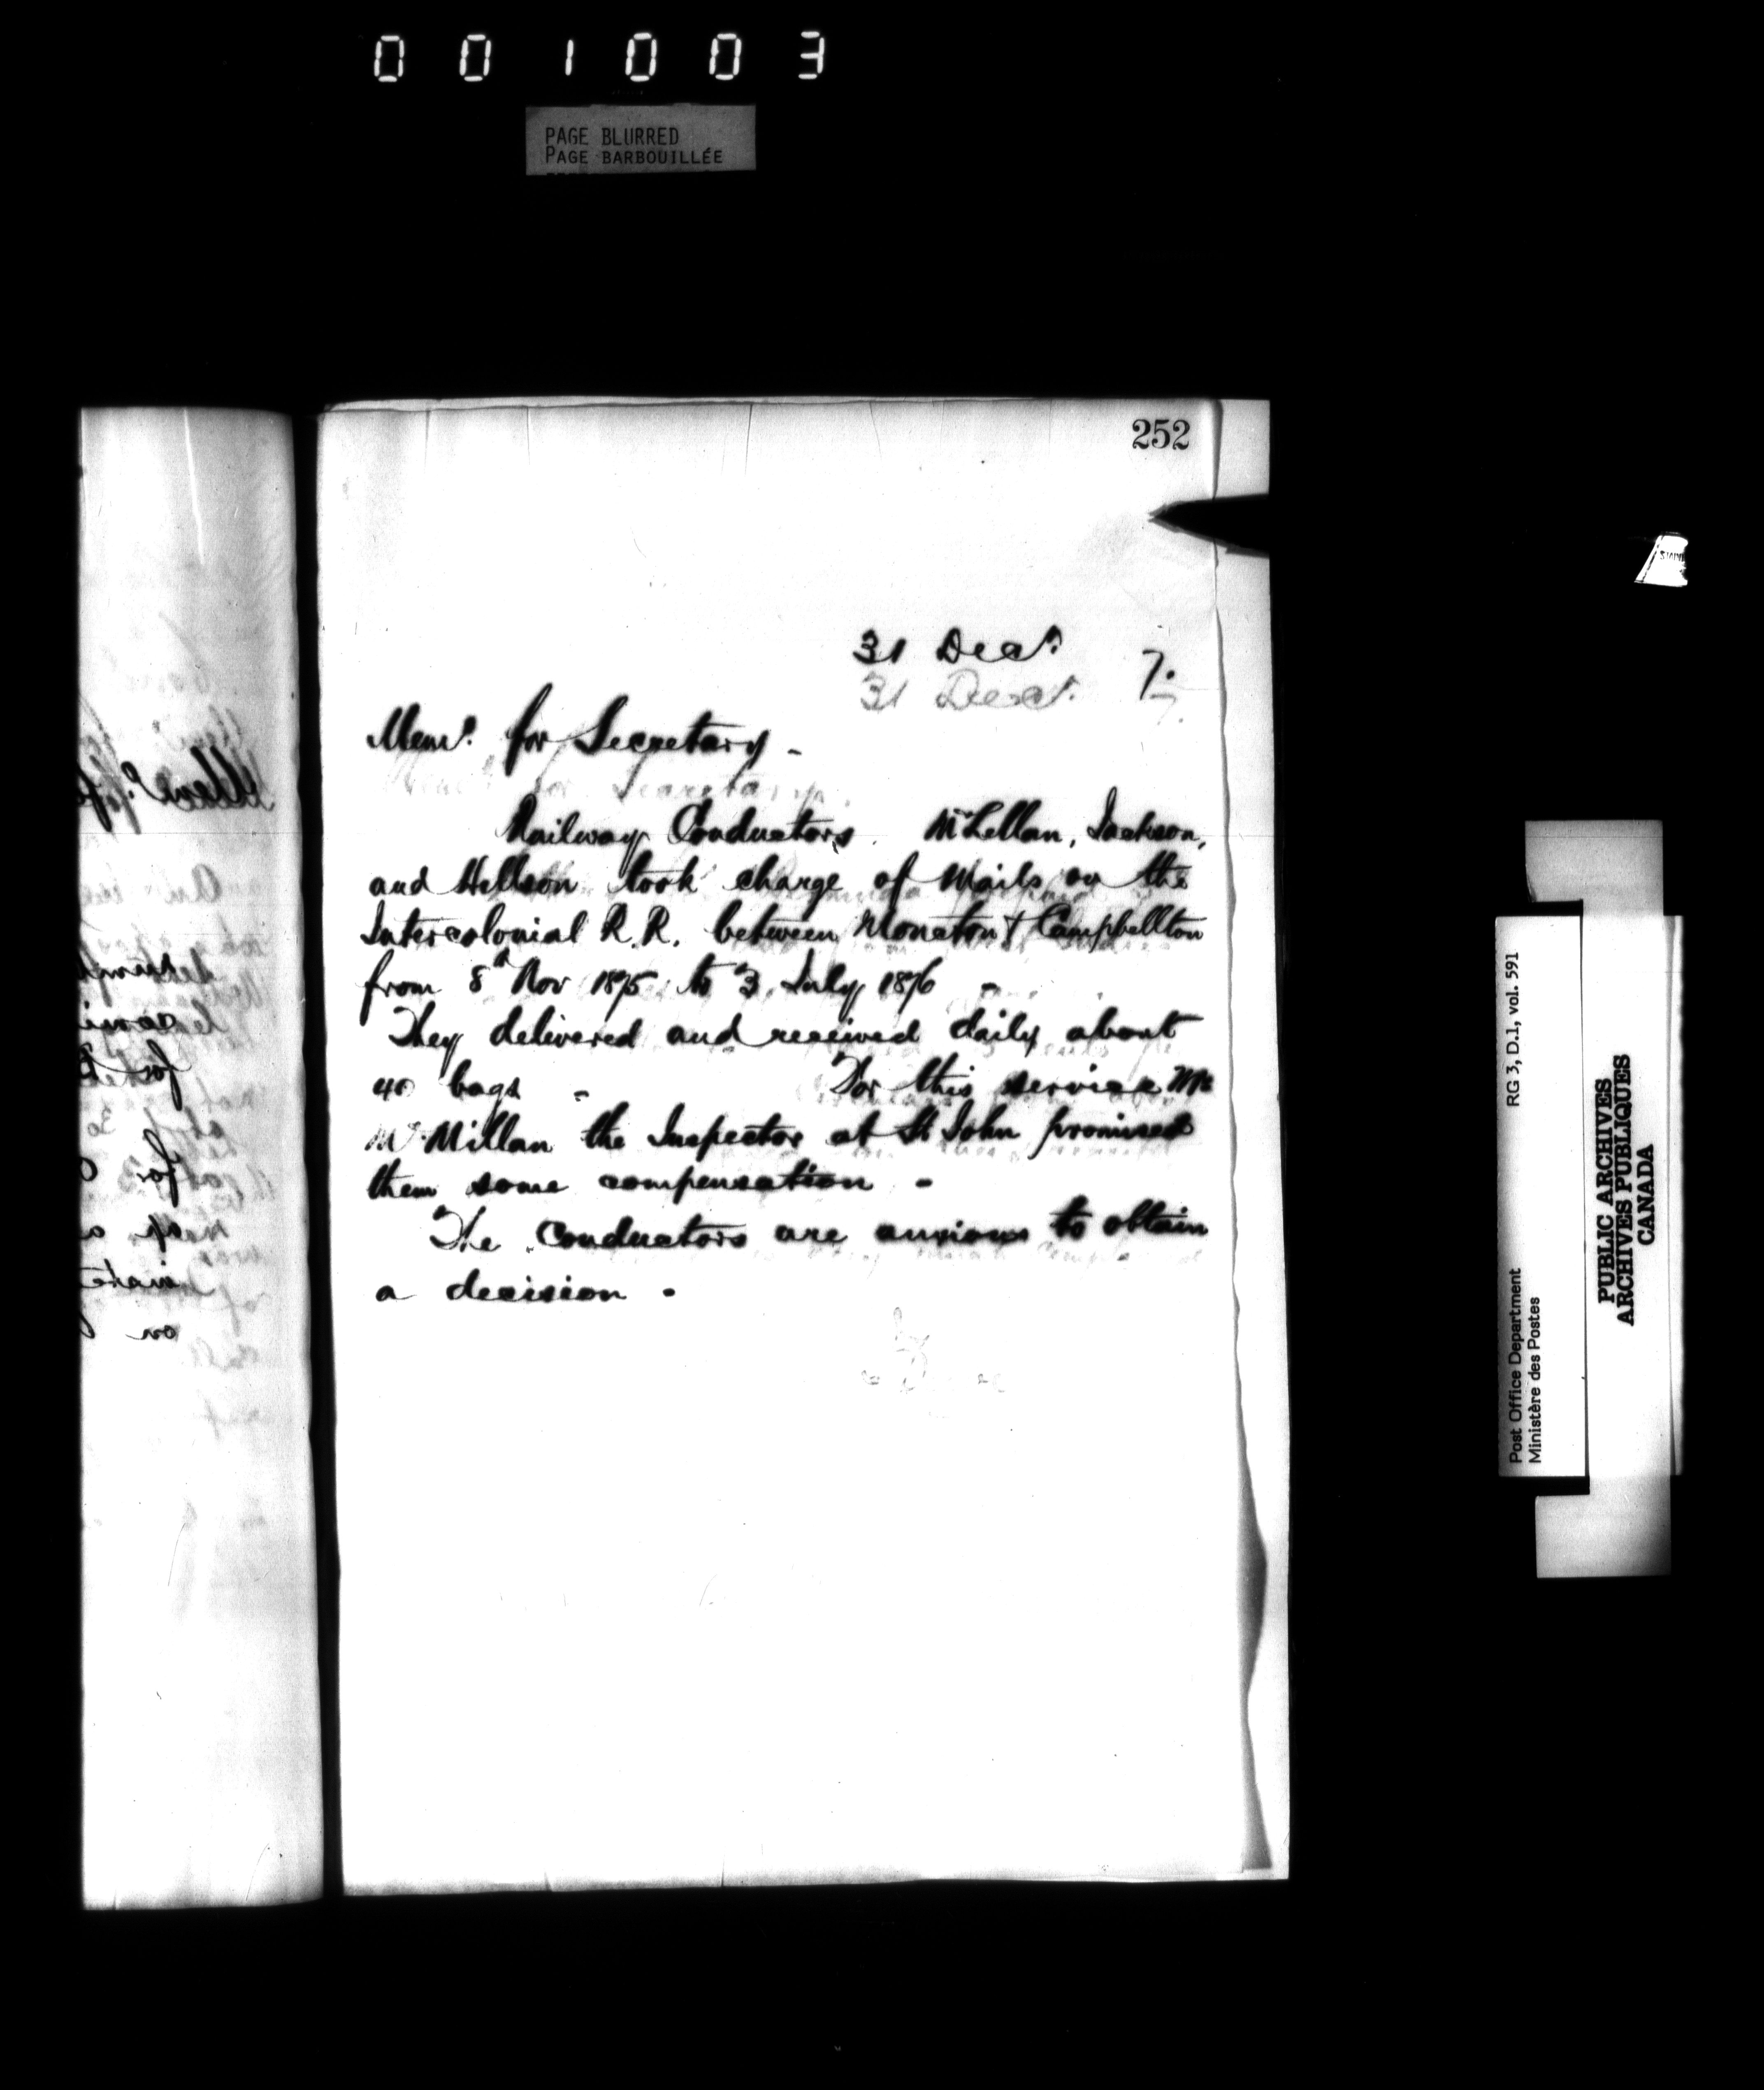 001003
PAGE BLURRED
PAGE BARBOUILLÉE
252
31 Decr. 7.
31 Decr. 7.
Memo. for Secretary -
for Secretary
Railway Conductors McLellan, Jackson,
and took charge of Mails on the
Intercolonial R.R. between Moncton & Campbellton
from 8th Nov 1875 to 3 July 1876 -
They delivered and received daily about
40 bags - For this service Mr
McMillan the Inspector at St John promised
them some compensation -
The Conductors are anxious to obtain
a decision -
RG 3, D.1, vol. 591
Post Office Department
Ministère des Postes
PUBLIC ARCHIVES
ARCHIVES PUBLIQUES
CANADA